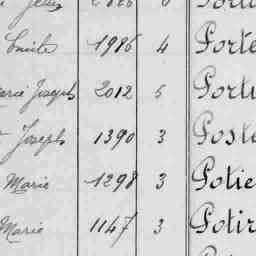 Emile 1986 4 Porte
Marie Joseph 2012 5 Portu
Joseph 1390 3 Poste
Marie 1298 3 Potie
Marie 1147 3 Potir